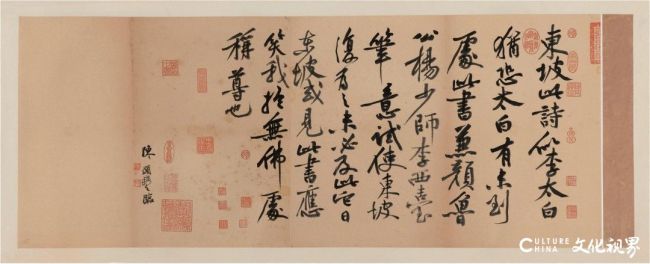 東坡此詩似李太白
猶恐太白有未到
處此書兼顔魯
公楊少師李西臺
筆意試使東坡
復為之未必及此它日
東坡或見此書應
笑我於無佛處
稱尊也
陳 臨
CULTURE CHINA 文化视界